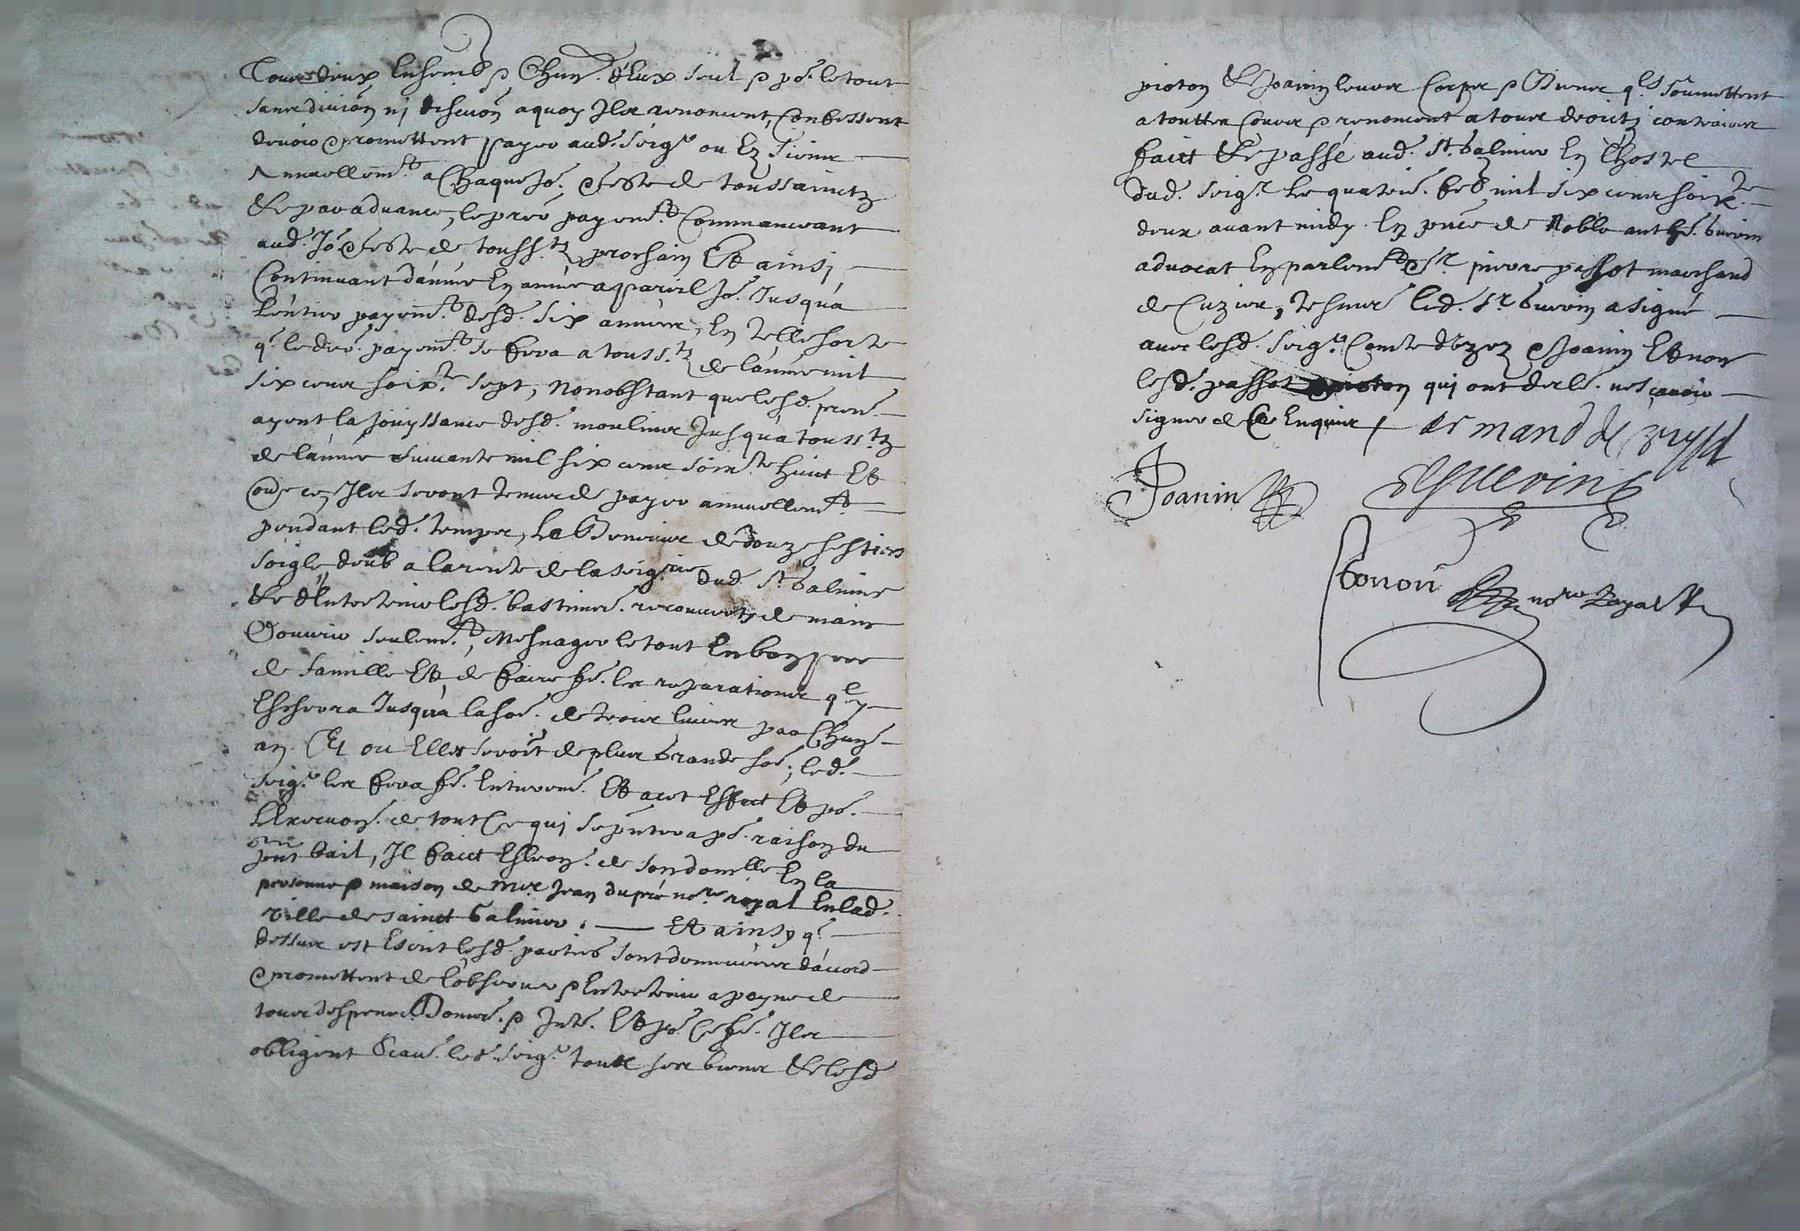 Tous deux Ensemb. & Chun. d'Eux seul & po. le tout
sans division nj discuon aquoy Ilz renoncent, Confessent
devoir & promettent payer aud. seigr. ou Ez siens
Annuellemt. a Chaque Jo. & feste de toussainctz
Et par advance, le pre. payemt. Commanceant
aud. Jo. & feste de touss.tz prochain Et ainsj
Continuant d'année En année a pareil Jo. Jusqu'a
l'entier payemt. desd. six années, En telle sorte
q. le der. payemt. se fera a touss.tz de l'année mil
six cens soix.te sept, Nonobstant que lesd. pren.
ayent la jouyssance desd. moulins Jusqu'a touss.tz
de l'année suivante mil six cens soix.te huict Et
Ilz seront tenus de payer annuellemt.
pendant led. temps, de douze sestiers
soigle deub a la rente de la seig.rie dud. St. Galmier
Et d'Entretenir lesd. bastimens. recouvertz de main
d'ouvrier seulemt., Mesnager le tout En bon pere
de famille Et de faire fe. les reparations q.l y
Escherra Jusqu'a la so. de trois livres par Chun.
an. Et ou Elles seroit de plus Grande so., led.
seigr. les fera fe. Entierem. Et a cet Effect Et po.
L'Execuon. de tout Ce qui se pntera po. raison du
pnt bail, Il faict Eslecon. de son domille En la
personne & maison de Me. Jean dupré no.re royal En lad.
Ville de sainct Galmier. Et ainsy q.
dessus est Escrit lesd. parties sont demeurées d'acord
& promettent de l'observer & Entretenir a payne de
tous despens. Domes. & Intes. Et po. Ce fe. Ilz
obligent Scav. led. seigr. tous ses biens Et lesd.
pioton Et Joanin leurs Corps & Biens q.ls soumettent
a touttes Cours & renoncent a tous droictz contraires
faict Et passé aud. St. Galmier En l'hostel
dud. seigr. Le quatrie. feb. mil six cens soix.te
deux avant midy En pnce de Noble anthe. Guerin
advocat En parlemt. & Sr. pierre passot marchand
de Cuzieu, tesmes. led. Sr. Guerin a signé
avec lesd. seigr. Comte & Joanin Et non
lesd. passot pioton qui ont decle. ne scavoir
signer de Ce Enquis / Armand de
Joanin Guerin
Bonon no.re Royal